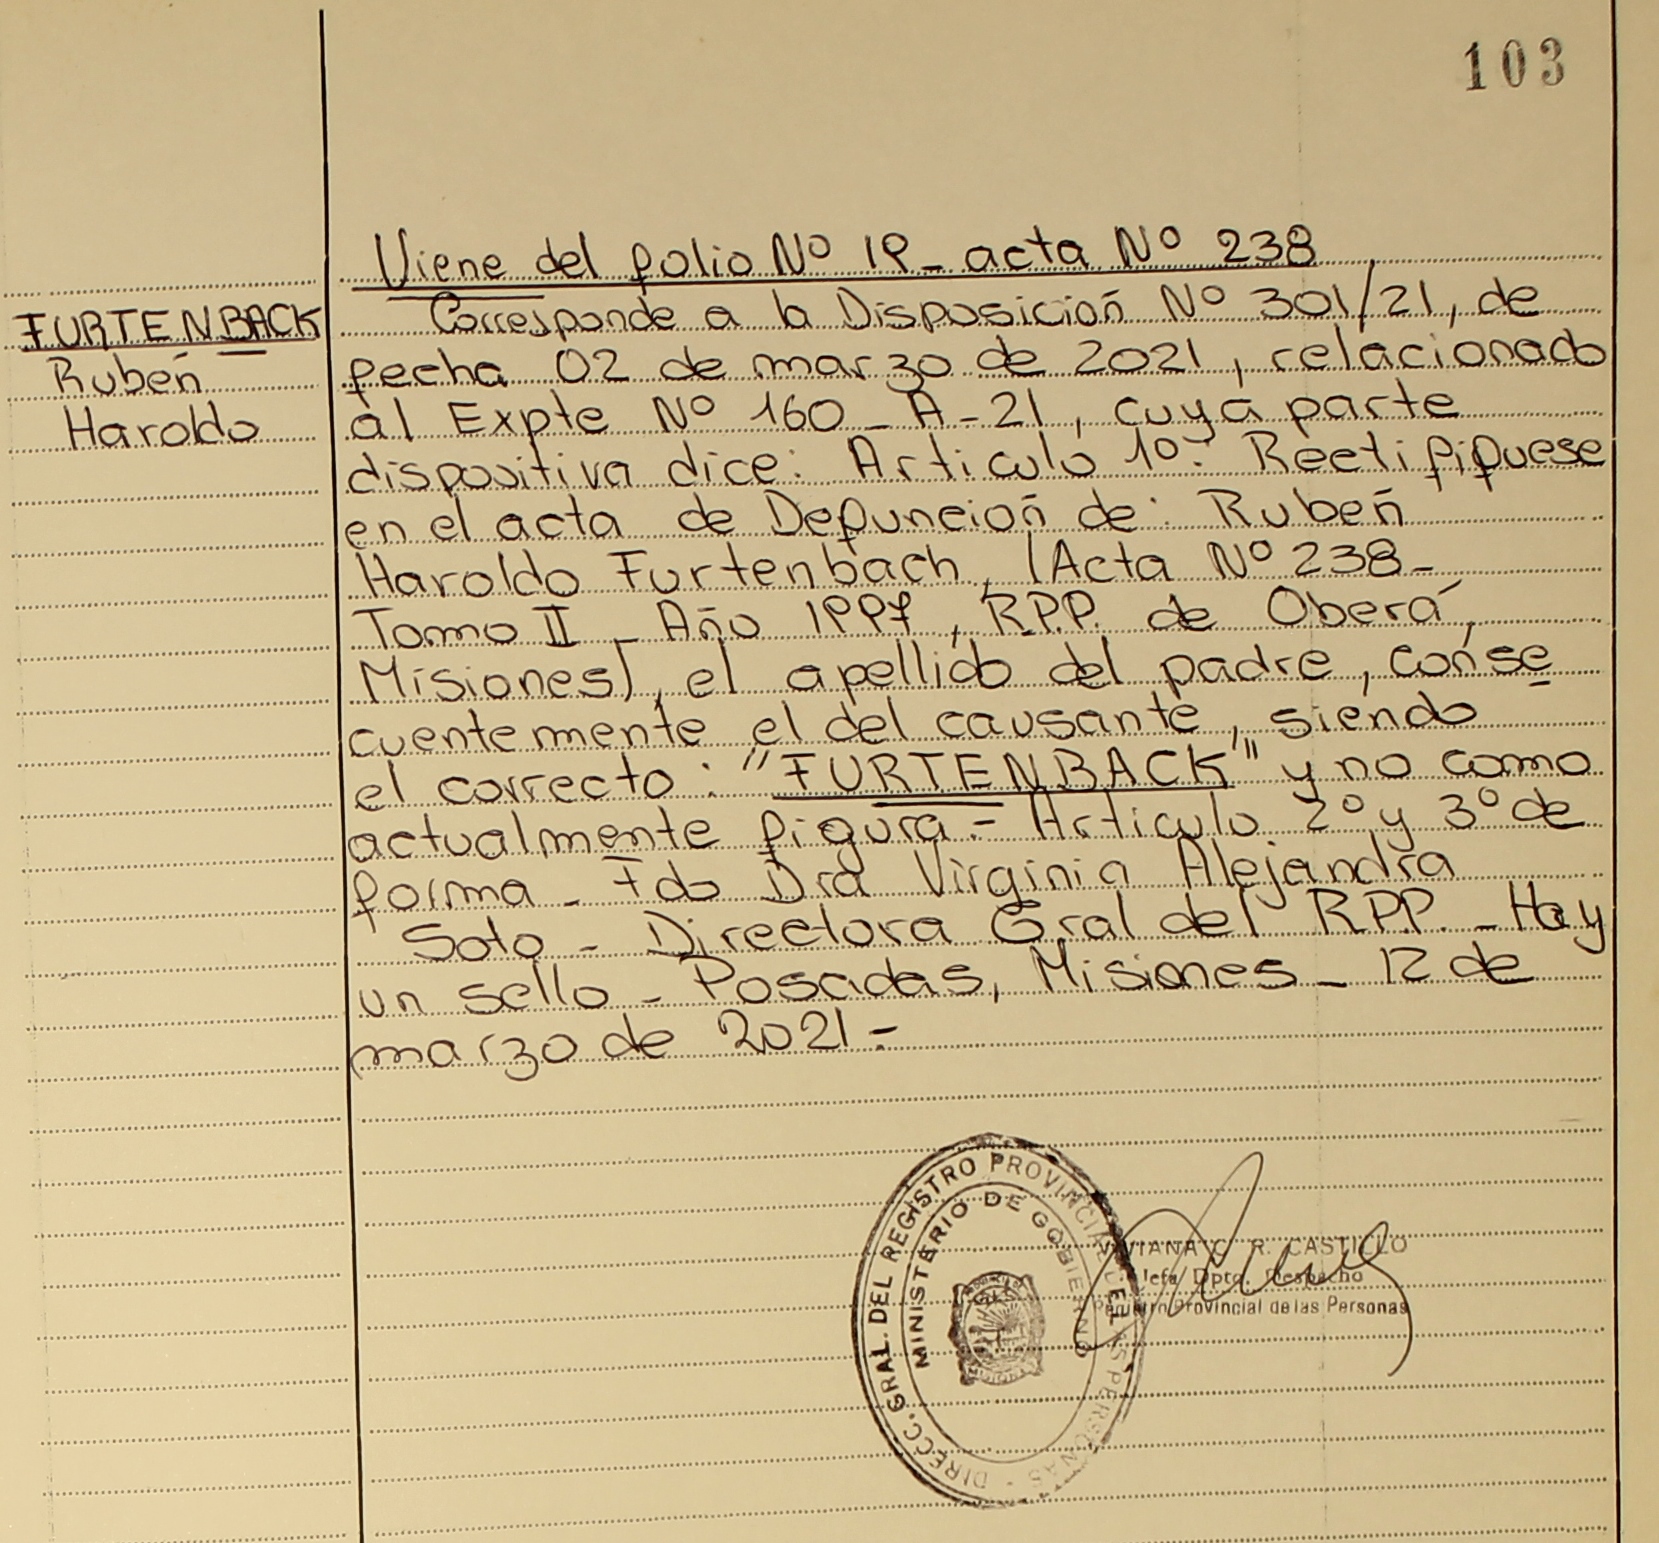 103
Viene del folio Nº 19_ acta Nº 238
FURTENBACK
Rubén
Haroldo
Corresponde a la Disposición Nº 301/21, de
fecha 02 de marzo de 2021, relacionado
al Expte Nº 160_A-21, cuya parte
dispositiva dice: Artículo 1º: Rectififuese
en el acta de Defunción de: Rubén
Haroldo Furtenbach, (Acta Nº 238-
Tomo II _ Año 1997, R.P.P. de Oberá,
Misiones), el apellido del padre, conse
cuentemente el del causante, siendo
el correcto: "FURTENBACK" y no como
actualmente figura.= Artículo 2º y 3º de
forma _ Fdo Dra Virginia Alejandra
Soto _ Directora Gral del R.P.P. _ Hay
un sello _ Posadas, Misiones _ 12 de
marzo de 2021.=
DIRECC. GRAL. DEL REGISTRO PROVINCIAL DE LAS PERSONAS
MINISTERIO DE GOBIERNO
VIVIANA C. R. CASTILLO
Jefa Dpto. Despacho
Registro Provincial de las Personas